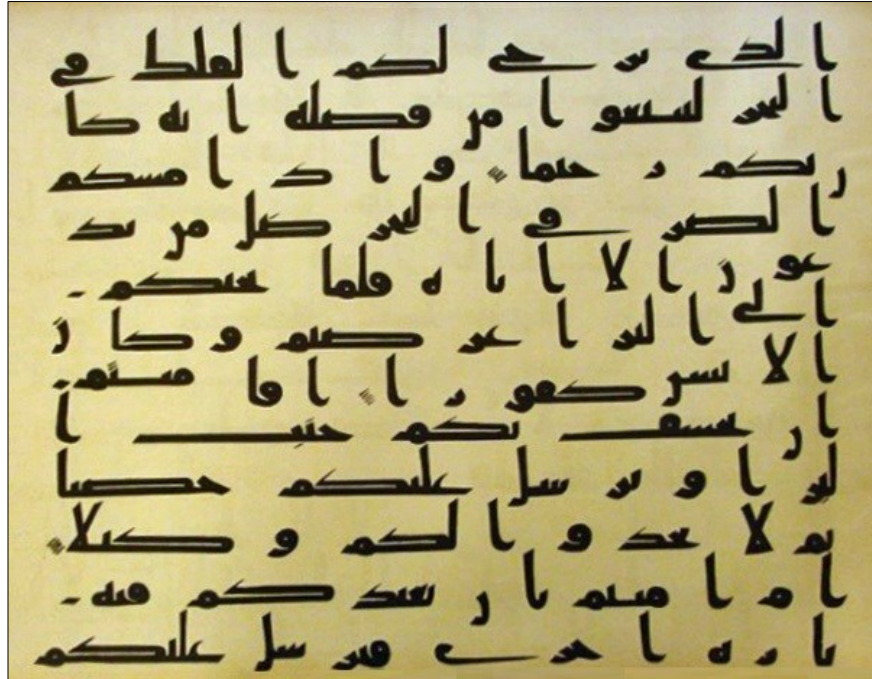 الذي يزجي لكم الفلك في
البحر لتبتغوا من فضله انه كا
ن بكم رحيما واذا مسكم
الضر في البحر ضل من تد
عون الا اياه فلما نجيكم
الى البر اعرضتم وكان
الانسن كفورا افامنتم
ان يخسف بكم جنب ا
لبر او يرسل عليكم حصبا
ثم لا تجدوا لكم وكيلا
ام امنتم ان يعيدكم فيه
تارة اخرى فيرسل عليكم